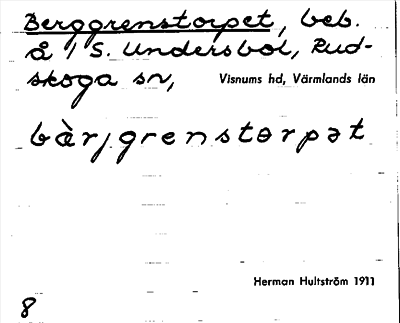 Berggrenstorpet, beb.
å 1/ S. Undersbol, Rud-
skoga sn, Visnums hd, Värmlands län
bàrjgrenstorpət
Herman Hultström 1911
8